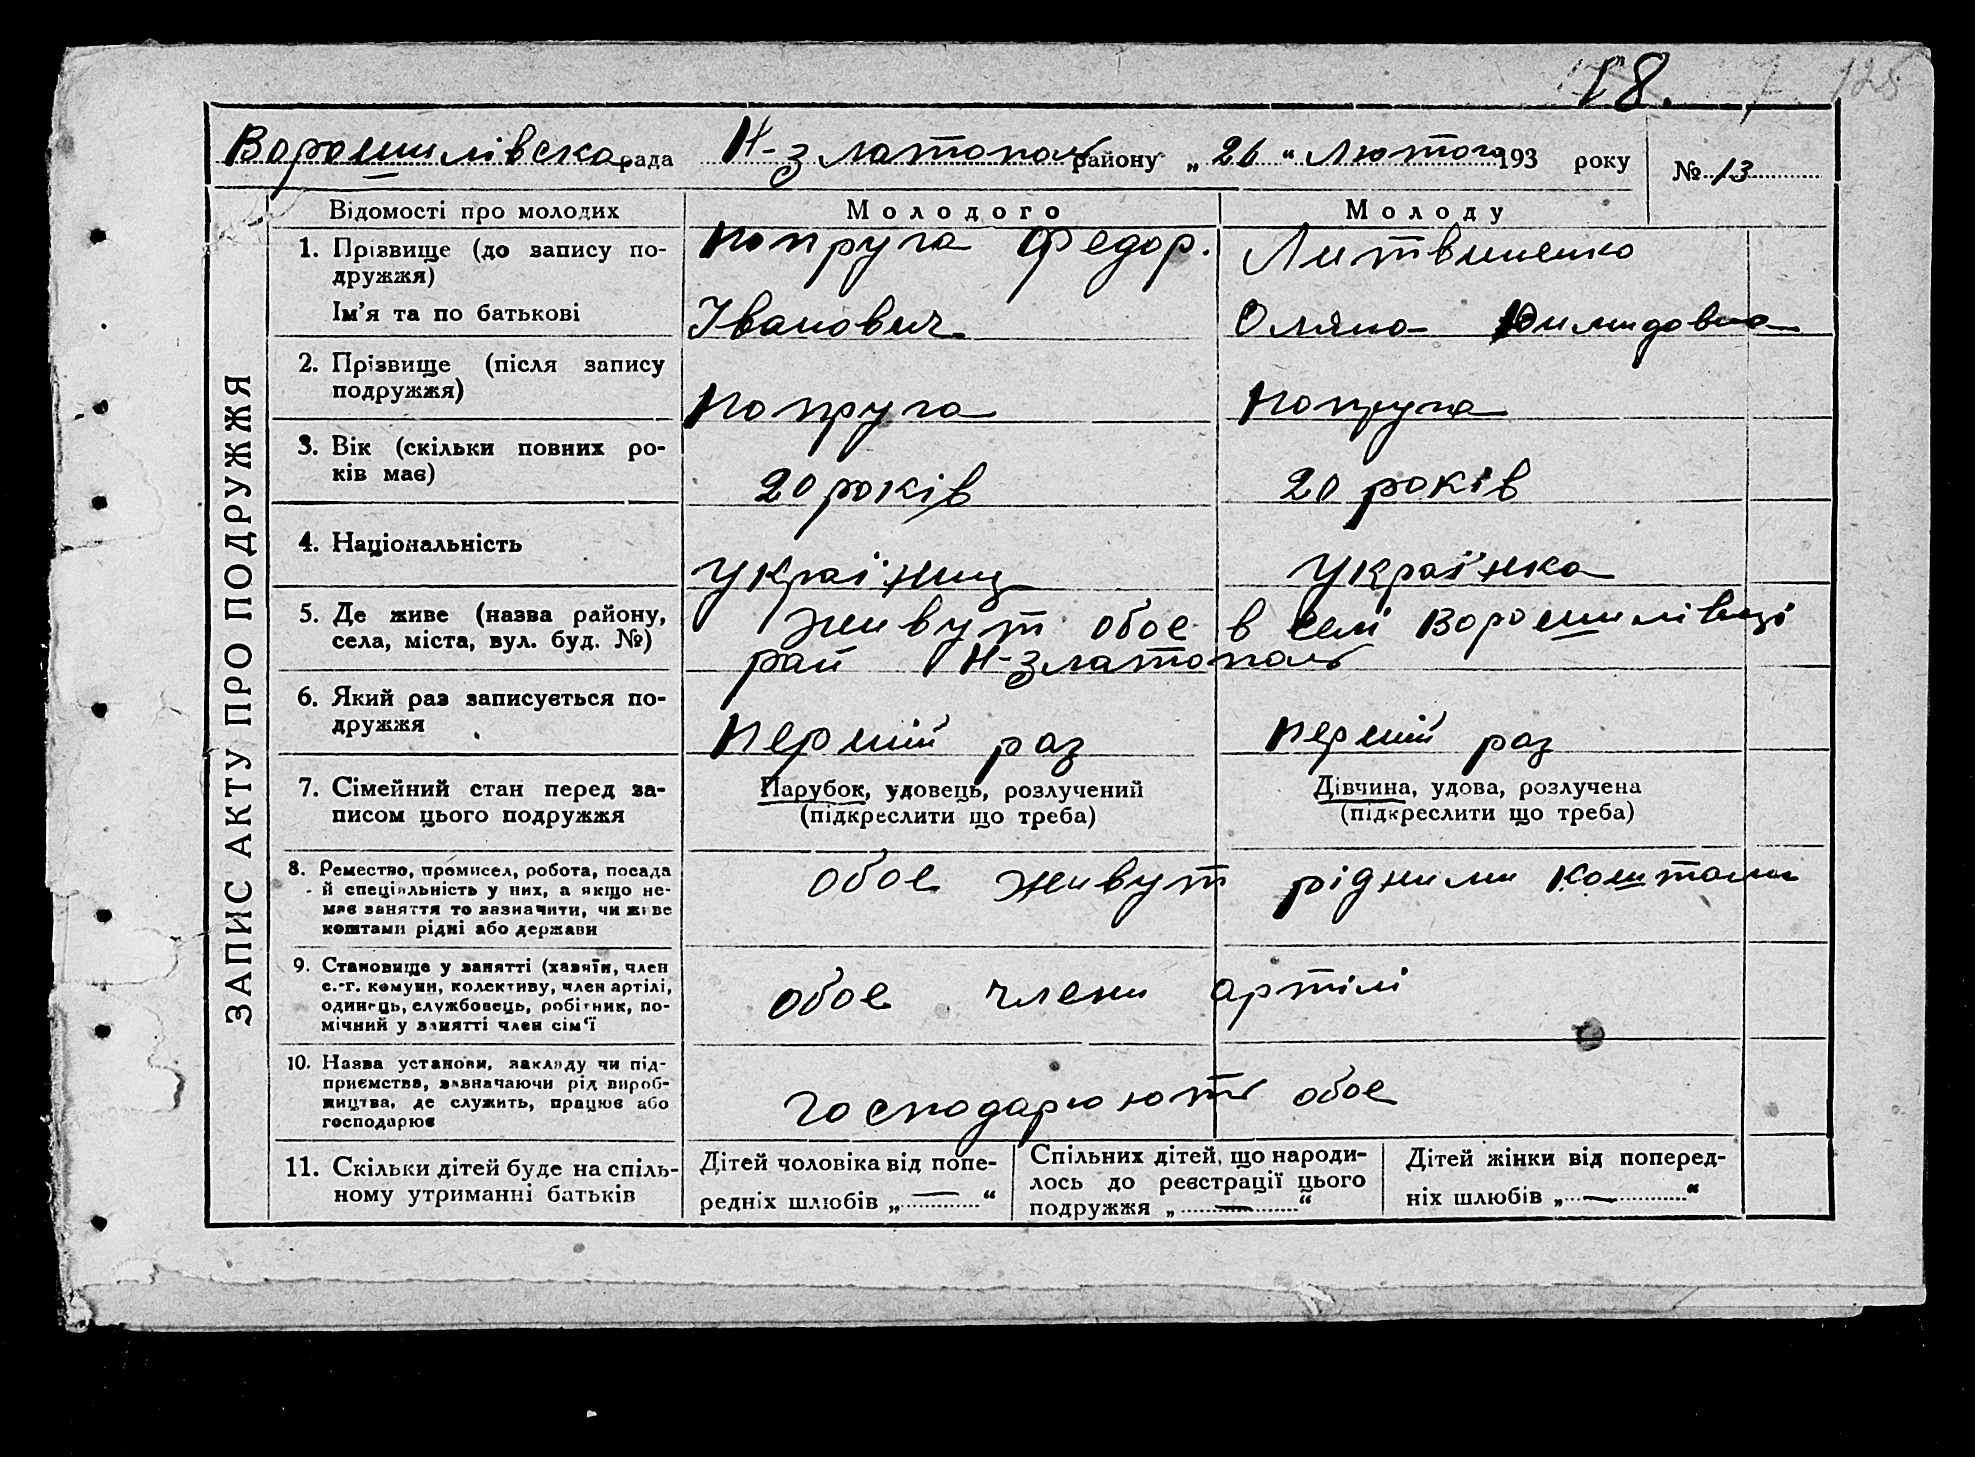 18.
125
Ворошилівска рада Н-Златополь району „ 26 " Лютого 193 року № 13
ЗАПИС АКТУ ПРО ПОДРУЖЖЯ
Відомості про молодих
Молодого
Молоду
1. Прізвище (до запису по-
дружжя)
Ім'я та по батькові
Попруга Федор.
Іванович
Литвиненко
Оляна
2. Прізвище (після запису
подружжя)
Попруга
Попруга
3. Вік (скільки повних ро-
ків має)
20 років
20 років
4. Національність
Україниц
Українка
5. Де живе (назва району,
села, міста, вул. буд. №)
живут обое в селі Ворошилівці
рай Н-Златополь
6. Який раз записується по-
дружжя
Перший раз
Перший раз
7. Сімейний стан перед за-
писом цього подружжя
Парубок, удовець, розлучений
(підкреслити що треба)
Дівчина, удова, розлучена
(підкреслити що треба)
8. Ремество, промисел, робота, посада
й спеціяльність у них, а якщо не-
має заняття то зазначити, чи живе
коштами рідні або держави
обое живут рідними коштами
9. Становище у занятті (хазяїн, член
с.-г. комуни, колективу, член артілі,
одинець, службовець, робітник, по-
мічний у занятті член сім'ї
обое члени артілі
10. Назва установи, закладу чи під-
приємства, зазначаючи рід вироб-
ництва, де служить, працює або
господарює
господарюють обое
11. Скільки дітей буде на спіль-
ному утриманні батьків
Дітей чоловіка від попе-
редніх шлюбів „ — "
Спільних дітей, що народи-
лось до реєстрації цього
подружжя „ — "
Дітей жінки від поперед-
ніх шлюбів „ — "